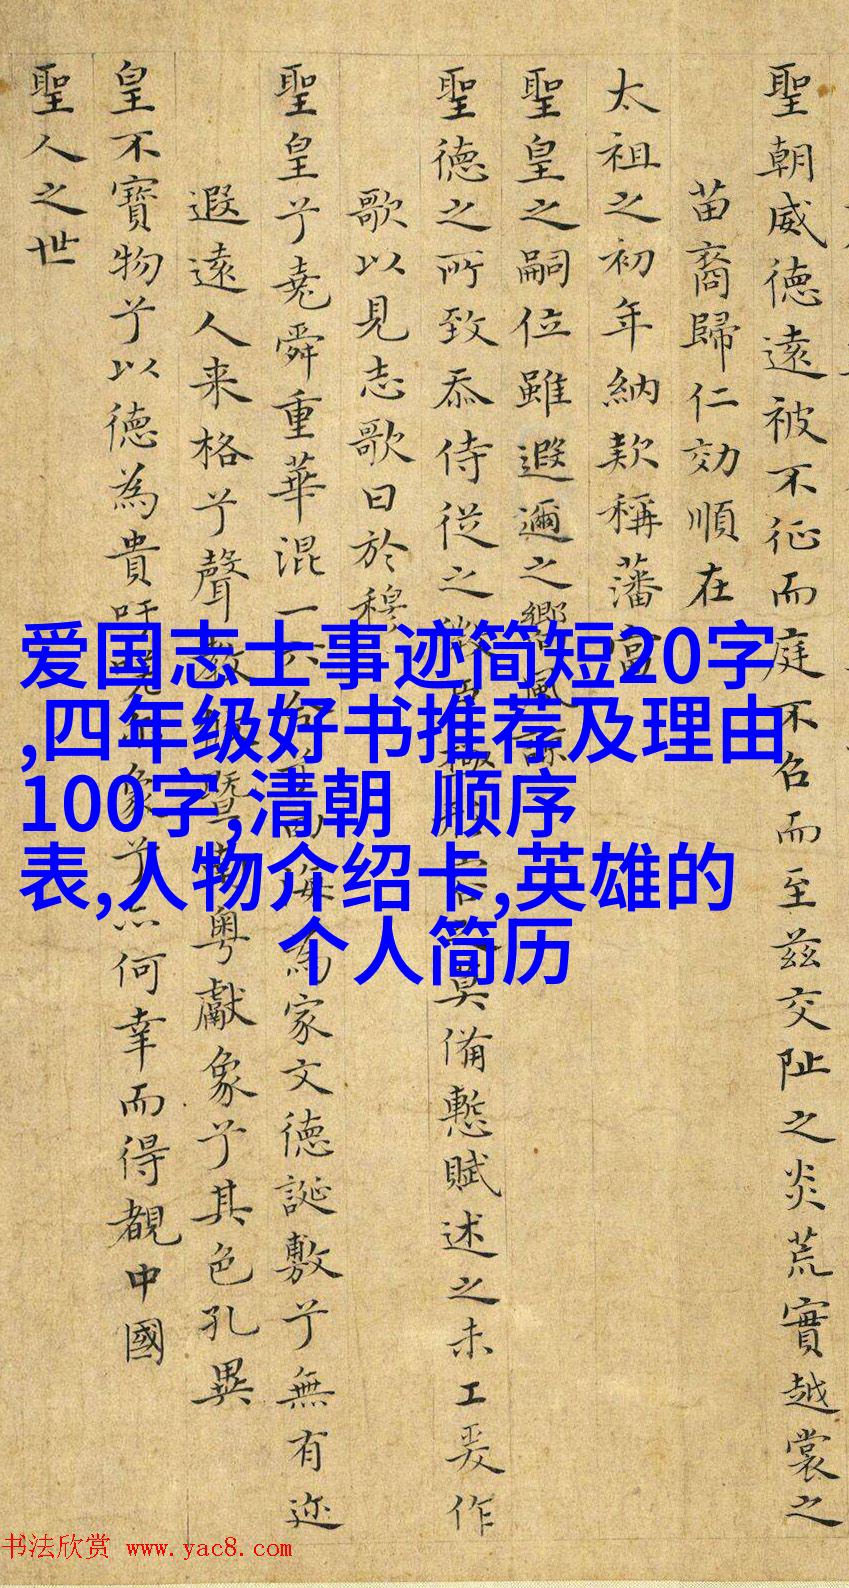 聖朝威徳遠被不征而庭不召而至茲交阯之炎荒實越裳之
苗裔歸仁効順在
太祖之初年納款稱藩當
聖皇之嗣位雖遐邇之嚮風諒
聖徳之所致忝侍從之微臣極形容莫備慙賦述之未工爰作
歌以見志歌曰於穆
聖皇兮堯舜重華混一六合兮四海為家文徳誕敷兮無有迩
遐遠人来格兮聲教旣暨南粤獻象兮其色孔異
皇不寶物兮以徳為貴吁嗟馴象兮亦何幸而得覩中國
聖人之世
爱国志士事迹简短20字
,四年级好书推荐及理由
100字,清朝 顺序
表,人物介绍卡,英雄的
个人简历
书法欣赏 www.yac8.com